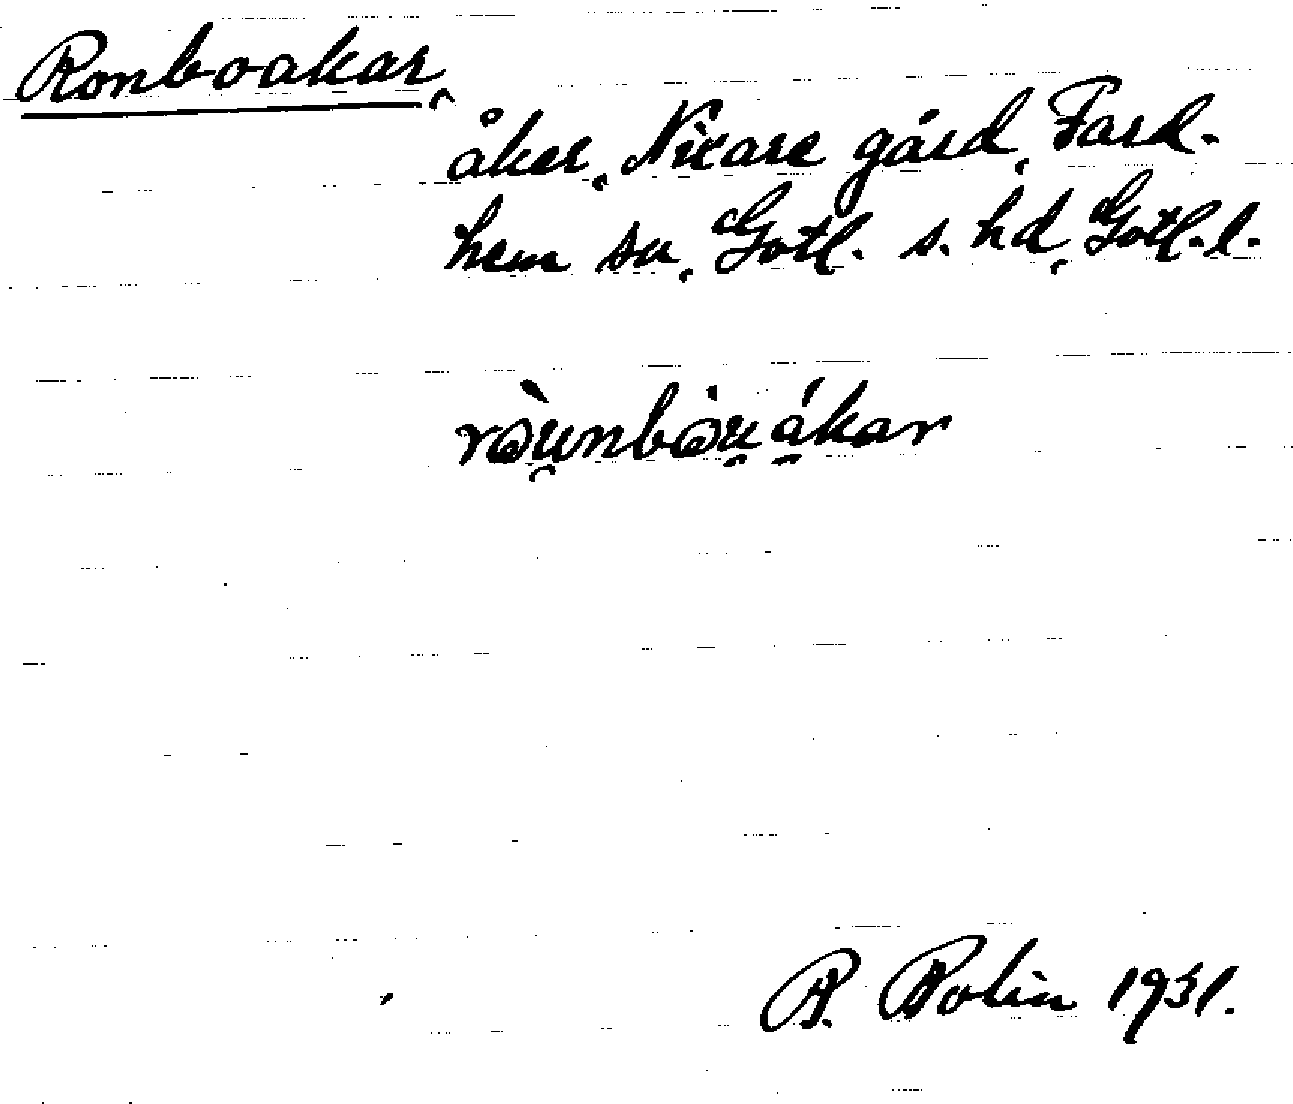 Ronboakar,
åker, Nixare gård, Fard-
hem sn, Gotl. s. hd, Gotl. l.
ròu̯nbòu̯ákar
P. Bolin 1931.